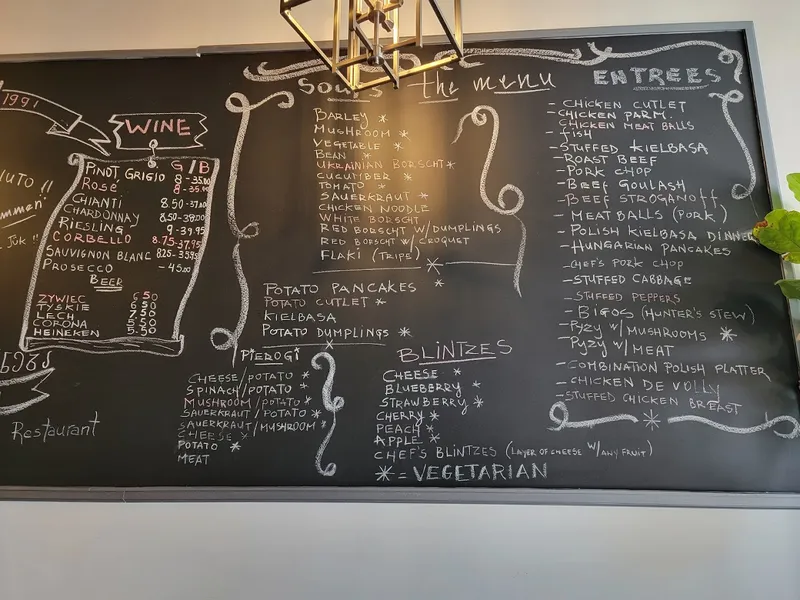 1991
WINE
G/B
PINOT GRIGIO 8-35.00
ROSÉ 8-35.00
CHIANTI 8.50-37.00
CHARDONNAY 8.50-38.00
RIESLING 9-39.95
CORBELLO 8.75-37.95
SAUVIGNON BLANC 8.25-35.95
PROSECCO -45.00
BEER
ZYWIEC 6.50
TYSKIE 6.50
LECH 7.50
CORONA 5.50
HEINEKEN 5.50
Restaurant
the menu
BARLEY *
MUSHROOM *
VEGETABLE *
BEAN *
UKRAINIAN BORSCHT *
CUCUMBER *
TOMATO *
SAUERKRAUT *
CHICKEN NOODLE
WHITE BORSCHT
RED BORSCHT W/DUMPLINGS
RED BORSCHT W/CROQUET
FLAKI (TRIPE)
POTATO PANCAKES *
POTATO CUTLET *
KIELBASA
POTATO DUMPLINGS *
PIEROGI
CHEESE/POTATO *
SPINACH/POTATO *
MUSHROOM/POTATO *
SAUERKRAUT/POTATO *
SAUERKRAUT/MUSHROOM *
CHEESE *
POTATO *
MEAT
BLINTZES
CHEESE *
BLUEBERRY *
STRAWBERRY *
CHERRY *
PEACH *
APPLE *
CHEF'S BLINTZES (LAYER OF CHEESE W/ANY FRUIT)
* = VEGETARIAN
ENTREES
- CHICKEN CUTLET
- CHICKEN PARM.
CHICKEN MEAT BALLS
- FISH
- STUFFED KIELBASA
- ROAST BEEF
- PORK CHOP
- BEEF GOULASH
- BEEF STROGANOFF
- MEAT BALLS (PORK)
- POLISH KIELBASA DINNER
- HUNGARIAN PANCAKES
- CHEF'S PORK CHOP
- STUFFED CABBAGE
- STUFFED PEPPERS
- BIGOS (HUNTER'S STEW)
- PYZY W/MUSHROOMS *
- PYZY W/MEAT
- COMBINATION POLISH PLATTER
- CHICKEN DE VOLLY
- STUFFED CHICKEN BREAST